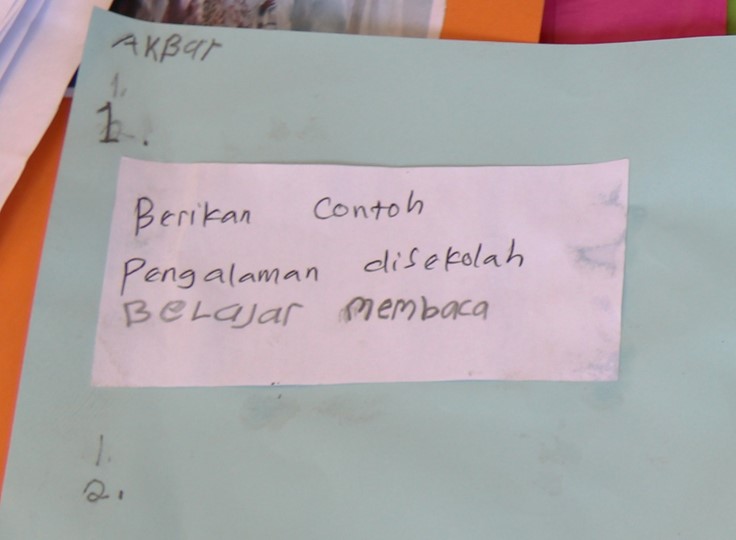 AKBar
1.
1.
Berikan Contoh
Pengalaman disekolah
BeLaJar membaca
1.
2.